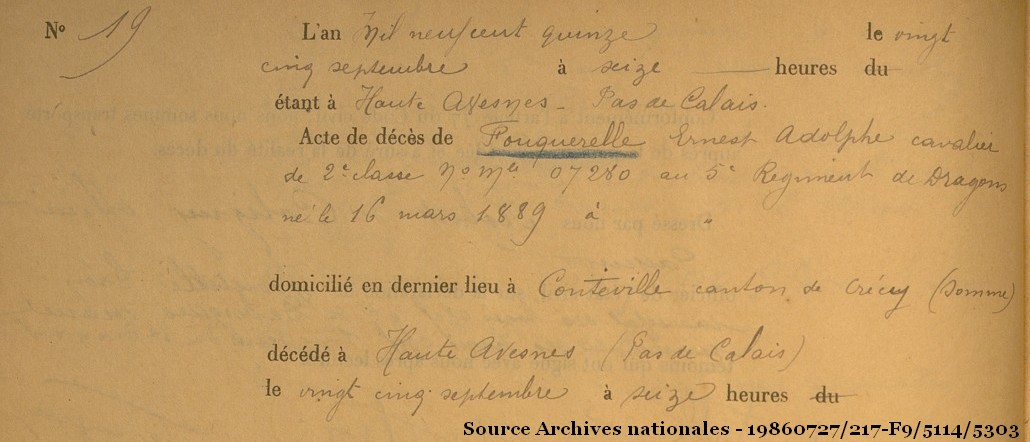 N° 19 L'an Mil neuf cent quinze le vingt
cinq septembre à seize heures du
étant à Haute Avesnes - Pas de Calais.
Acte de décès de Fouquerelle Ernest Adolphe cavalier
de 2e classe No Mle 07280 au 5e Régiment de Dragons
né le 16 mars 1889 à "
domicilié en dernier lieu à Conteville canton de Crécy (Somme)
décédé à Haute Avesnes (Pas de Calais)
le vingt cinq septembre à seize heures du
Source Archives nationales - 19860727/217-F9/5114/5303